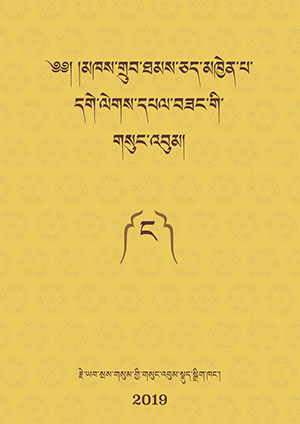 ༄༅། །མཁས་གྲུབ་ཐམས་ཅད་མཁྱེན་པ་
དགེ་ལེགས་དཔལ་བཟང་གི་
གསུང་འབུམ།
ང
རྗེ་ཡབ་སྲས་གསུམ་གྱི་གསུང་འབུམ་སྡུད་སྒྲིག་ཁང་།
2019